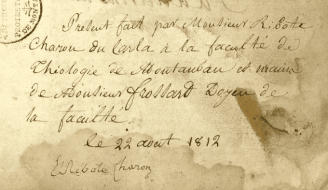 Présent fait par Monsieur Ribote
Charon du Carla à la faculté de
Théologie de Montauban ès mains
de Monsieur Frossard Doyen de
la faculté.
le 22 aout 1812
Ribote Charon